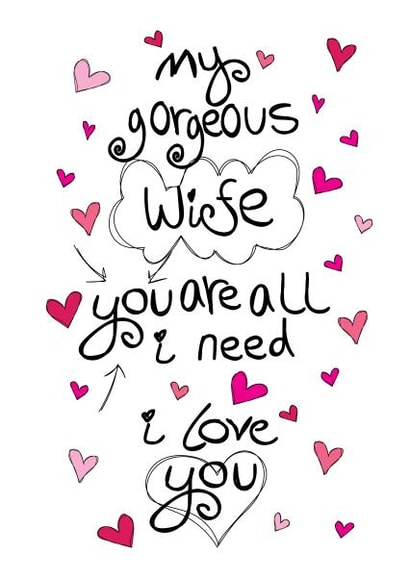 my
gorgeous
Wife
you are all
i need
i love
you